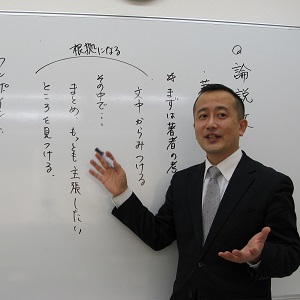 Q 論説
著
※まずは著者の考
文中からみつける
根拠になる
その中で…
まとめ、もっとも主張したい
ところを見つける。
ワンポイント